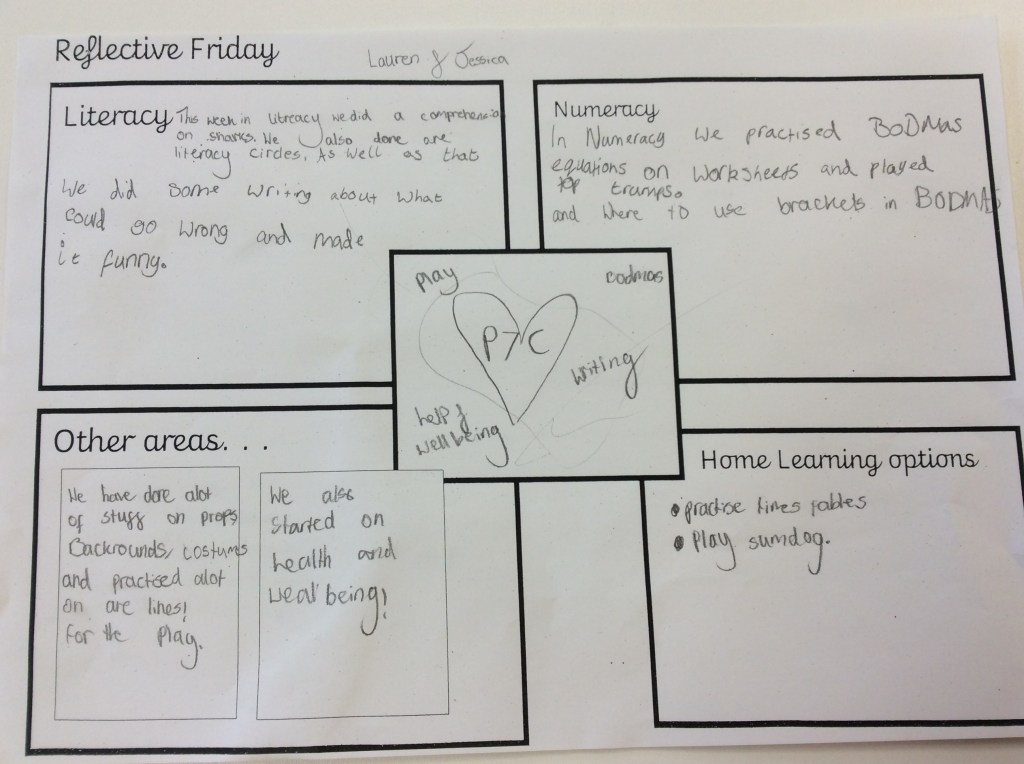 Reflective Friday
Lauren & Jessica
Literacy
This week in litreacy we did a comprehension
on sharks. We also done are
literacy circles. As well as that
we did some writing about what
could go wrong and made
it funny.
Numeracy
In Numeracy we practised BoDMas
equations on worksheets and played
top trumps.
and where to use brackets in BODMAS
play
codmas
P7C
writing
help &
wellbeing
Other areas...
We have done alot
of stuff on props
Backrounds, costums
and practised alot
on are lines!
For the play.
We also
started on
health and
weal being!
Home Learning options
• practise times tables
• play sumdog.